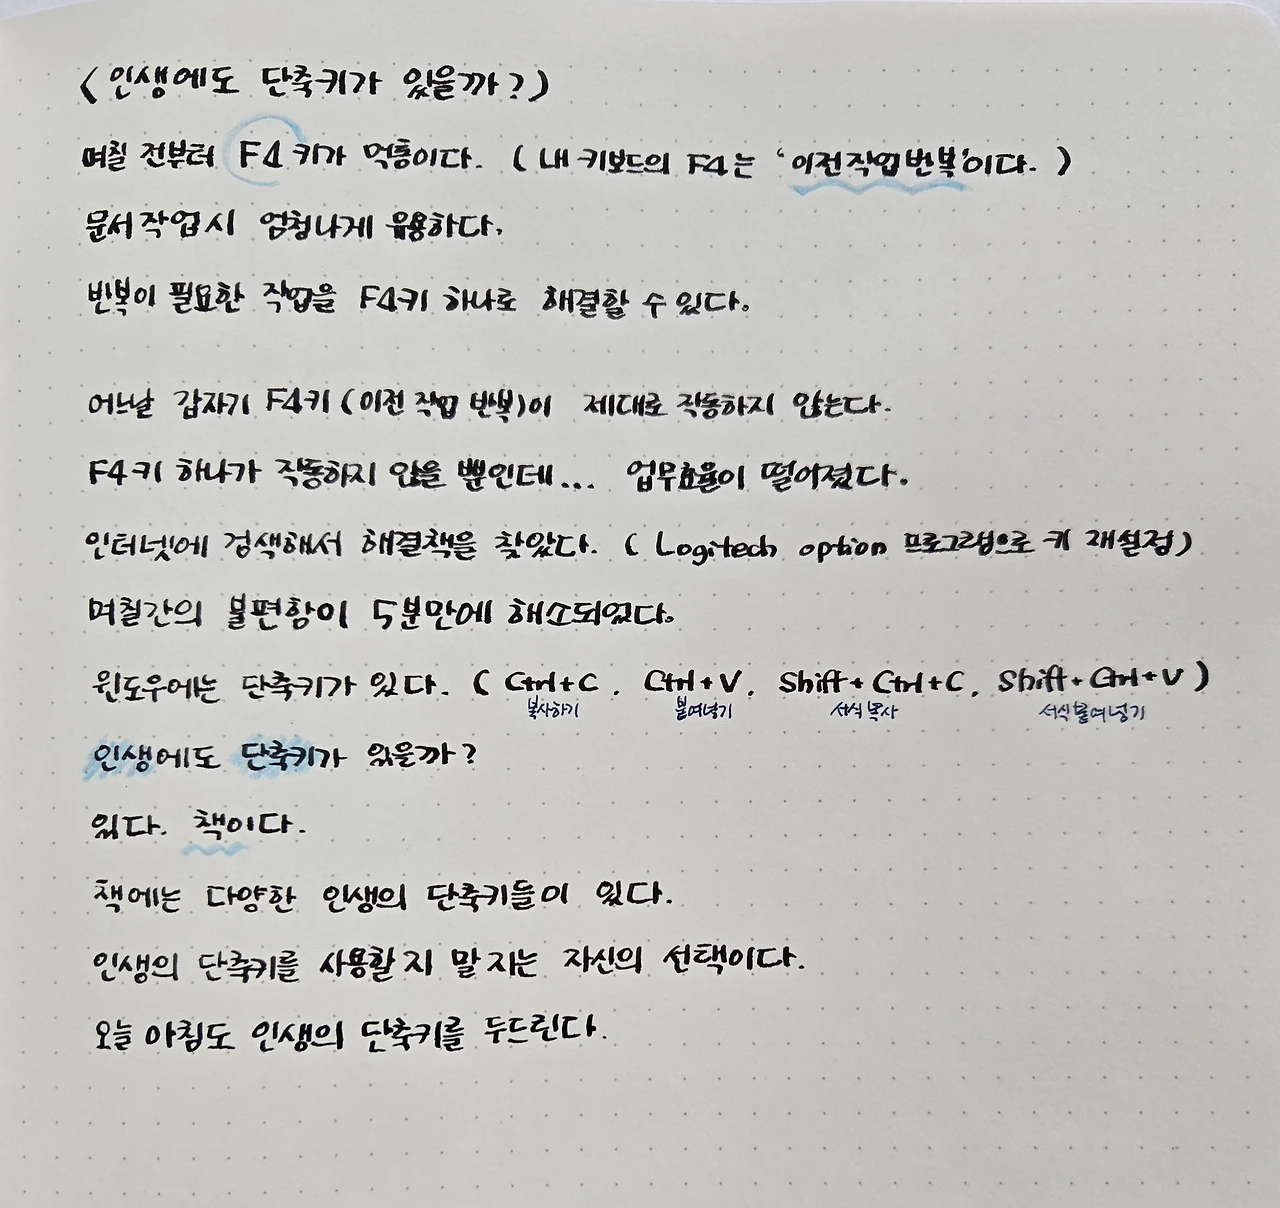 <인생에도 단축키가 있을까?>
며칠 전부터 F4키가 먹통이다. (내 키보드의 F4는 '이전작업반복'이다.)
문서작업시 엄청나게 유용하다.
반복이 필요한 작업을 F4키 하나로 해결할 수 있다.
어느날 갑자기 F4키(이전 작업 반복)이 제대로 작동하지 않는다.
F4키 하나가 작동하지 않을 뿐인데... 업무효율이 떨어졌다.
인터넷에 검색해서 해결책을 찾았다. (Logitech option 프로그램으로 키 재설정)
며칠간의 불편함이 5분만에 해소되었다.
윈도우에는 단축키가 있다. (Ctrl+C, Ctrl+V, Shift+Ctrl+C, Shift+Ctrl+V)
복사하기 붙여넣기 서식복사 서식붙여넣기
인생에도 단축키가 있을까?
있다. 책이다.
책에는 다양한 인생의 단축키들이 있다.
인생의 단축키를 사용할지 말지는 자신의 선택이다.
오늘 아침도 인생의 단축키를 두드린다.